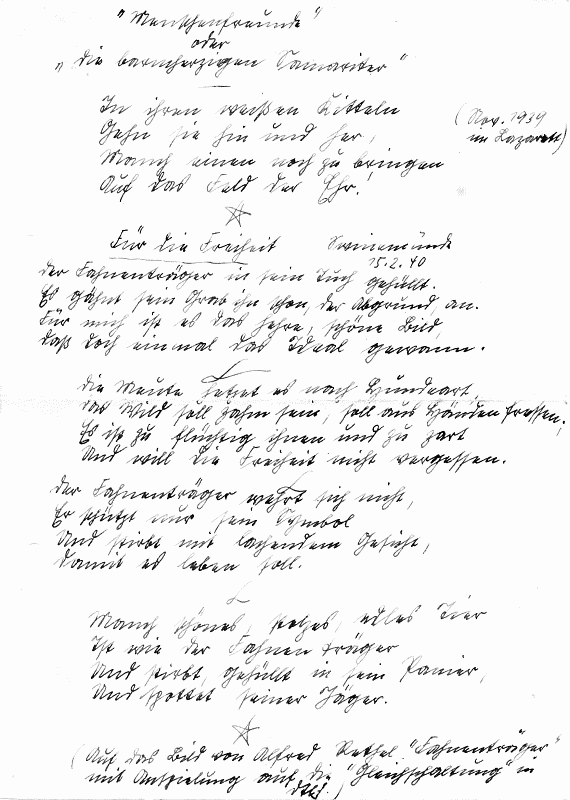 "Menschenfreunde"
oder
"die barmherzigen Samariter"
In ihren weißen Kitteln
Gehn sie hin und her,
Manch einen noch zu bringen
Auf das Feld der Ehr!
(Nov. 1939
im Lazarett)
Für die Freiheit Swinemünde
15.2.40
Der Fahnenträger in sein Tuch gehüllt.
Es gähnt sein Grab ihn schon, der Abgrund an.
Für mich ist es das hehre, schöne Bild,
daß doch einmal das Ideal gewann.
Die Meute hetzet es nach Hundeart,
das Wild soll zahm sein, soll aus Händen fressen;
Es ist zu flüchtig ihnen und zu zart
Und will die Freiheit nicht vergessen.
Der Fahnenträger wehrt sich nicht,
Er schützt nur sein Symbol
Und stirbt mit lachendem Gesicht,
Damit es leben soll.
Manch schönes, stolzes, edles Tier
Ist wie der Fahnenträger
Und stirbt, gehüllt in sein Panier,
Und spottet seiner Jäger.
(Auf das Bild von Alfred Rethel "Fahnenträger"
mit Anspielung auf die "Gleichschaltung" in
Dtld.)